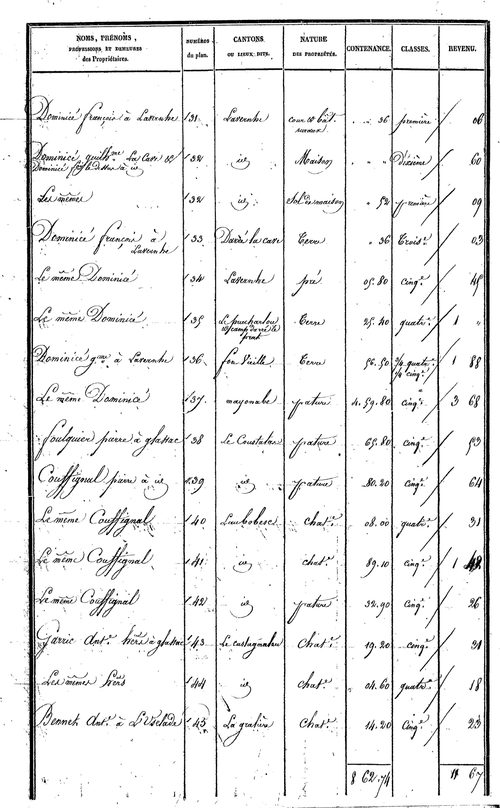 NOMS, PRÉNOMS, PROFESSIONS ET DEMEURES des Propriétaires. NUMÉROS du plan. CANTONS OU LIEUX DITS. NATURE DES PROPRIÉTÉS. CONTENANCE. CLASSES. REVENU.
Dominicé françois à Laservhe 131 Laservhe cour et bât ruraux " " 36 première " 06
Dominicé guilhme La Case et 132 id Maison " " dixième " 60
Dominicé à id
Les mêmes 132 id Sol de maison " 52 première " 09
Dominicé françois à 133 Darré la case Terre " 36 Trois.e " 03
Laservhe
Le même Dominicé 134 Laservhe pré 05.80 cinq.e " 45
Le même Dominicé 135 Terre 25.40 quatr.e 1 "
Dominicé gme à Laservhe 136 fon vieille Terre 56.50 quatr.e 1 88
cinq.e
Le même Dominicé 137. mayonabe pature 4.59.80 cinq.e 3 68
foulquier pierre à glassac 138 Le Coustalac pature 65.80 cinq.e 53
Couffignal pierre à id 139 id pature 80.20 cinq.e 64
Le même Couffignal 140 Laubobesc chat.e 08.00 quatr.e 31
Le même Couffignal 141 id chat.e 89.10 cinq.e 1
Le même Couffignal 142 id pature 32.90 cinq.e 26
Garric Ant.e hers à glassac 143 Le castagnalou Chat.e 19.20 cinq.e 31
Les mêmes hers 144 id Chat.e 04.60 quatr.e 18
Bennet Ant.e à L'Uselade 145 La gratire Chat.e 14.20 Cinq.e 23
8 62.74 11 67